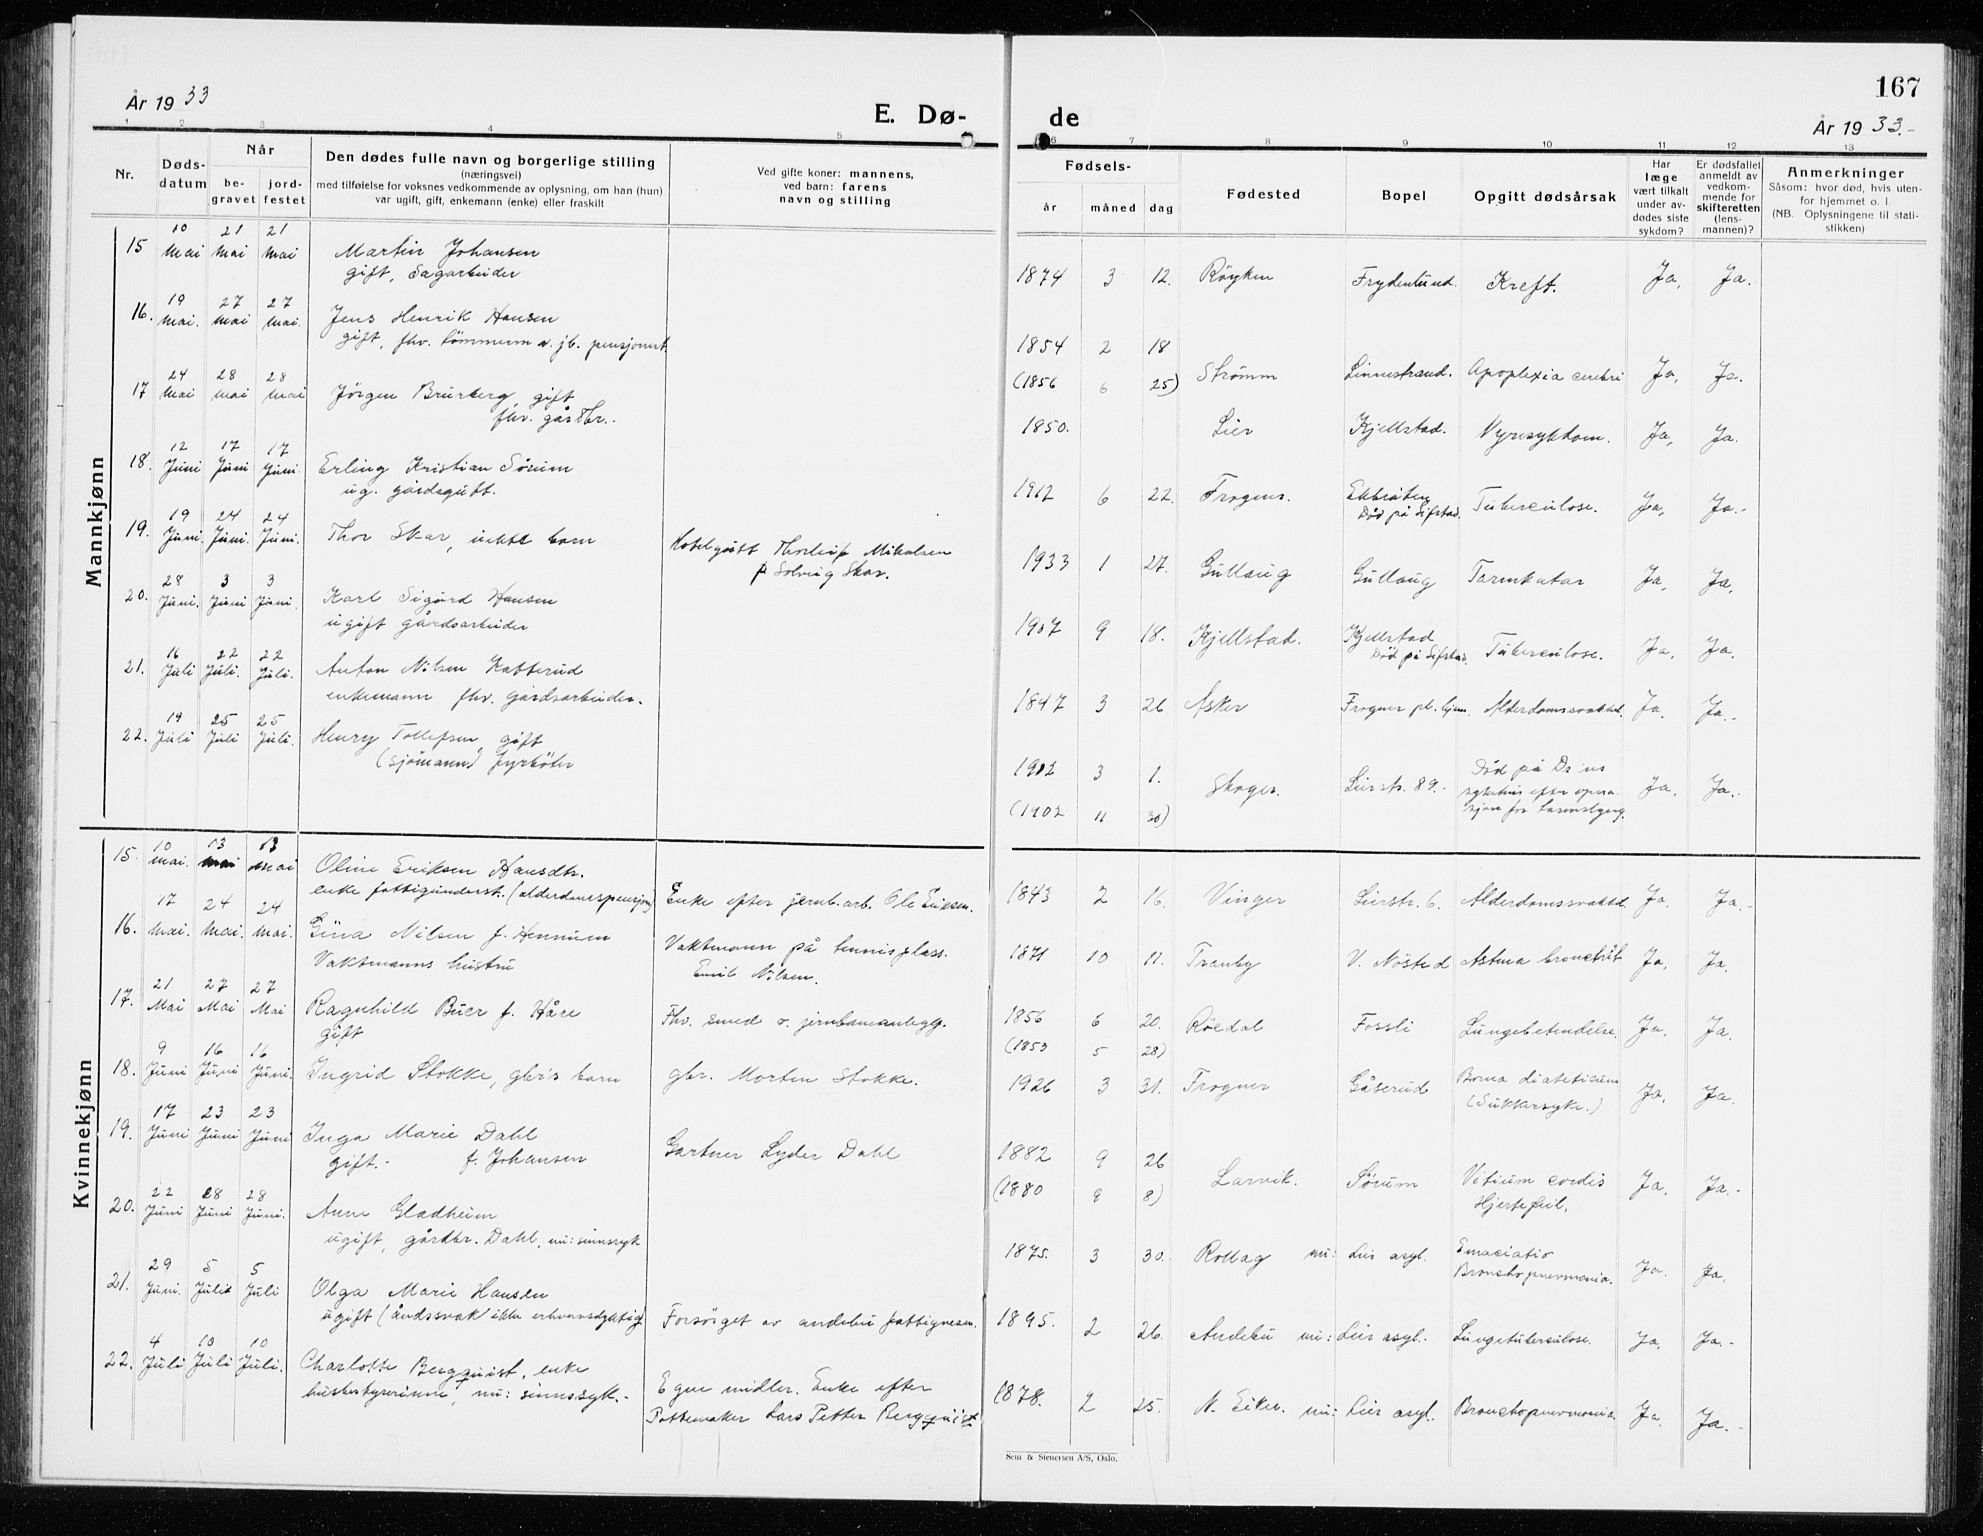 167
År 1933
E. Dø-
de
År 1933.-
1 2 3 4 5
6 7 8 9 10 11 12 13
Nr.
Døds-
datum
Når
be-
gravet
jord-
festet
Den dødes fulle navn og borgerlige stilling
(næringsvei)
med tilføielse for voksnes vedkommende av oplysning, om han (hun)
var ugift, gift, enkemann (enke) eller fraskilt
Ved gifte koner: mannens,
ved barn: farens
navn og stilling
Fødsels-
år måned dag
Fødested
Bopel
Opgitt dødsårsak
Har
læge
vært tilkalt
under av-
dødes siste
sykdom?
Er dødsfallet
anmeldt av
vedkom-
mende for
skifteretten
(lens-
mannen)?
Anmerkninger
Såsom: hvor død, hvis uten-
for hjemmet o. l.
(NB. Oplysningene til stati-
stikken)
Mannkjønn
15 10 mai 21 mai 21 mai Martin Johansen
gift, Sagarbeider
1874 3 12. Røyken Frydenlund. Kreft. Ja, Ja.
16. 19 mai. 27 mai 27 mai. Jens Henrik Hansen
gift, fhv. tömmerm v. jb. pensjonert.
1854 2 18
(1856 6 25) Strømm Linnestrand. Apoplexia cerebri Ja, Ja.
17 24 mai 28 mai 28 mai Jörgen Brurberg, gift
fhv. gårdbr..
1850. Lier Kjellstad. Nyresykdom. Ja, Ja.
18. 12 Juni 17 Juni 17 Juni. Erling Kristian Sörum
ug. gårdsgutt.
1912 6 22. Frogner. Ekbråten
Död på Sifstad. Tuberculose. Ja, Ja.-
19. 19 Juni. 24 Juni. 24 Juni. Thor Skar, uekte barn
Hotelgutt Thorleif Mikalsen
p Solveig Skar.
1933 1 27. Gullaug Gullaug Tarmkatar Ja, Ja,
20. 28 Juni. 3 Juni 3 Juni. Karl Sigurd Hansen
ugift gårdsarbeider
1907 9 18. Kjellstad. Kjellstad
Död på Sifstad. Tuberculose. Ja, Ja.
21. 16 Juli 22 Juli. 22 Juli. Anton Nilsen Katterud
enkemann fhv. gårdsarbeider.
1847 3 26 Asker Frogner pl. hjem. Alderdomssvakhd. Ja, Ja.
22. 19 Juli 25 Juli 25 Juli. Henry Tollefsen gift
(sjömann) fyrböter
1902 3 1.
(1902 11 30) Skoger. Lierstr. 89.- Död på Dr:ns
sykehus efter opera-
sjon for tarmslyng. Ja, Ja.
Kvinnekjønn
15. 10 mai. 13 mai 13 mai Oline Eriksen Hansdtr.
enke fattigunderst. (alderdomspensjon) Enke efter jernb.arb. Ole Eriksen.
1843 2 16. Vinger Lierstr. 6. Alderdomssvakhd. Ja, Ja.-
16. 17 mai. 24 mai. 24 mai. Gina Nilsen f. Hennum
Vaktmanns hustru
Vaktmann på tennisplass.
Emil Nilsen.
1871 10 11. Tranby V. Nöste d Astma bronchit Ja, Ja.
17. 21 Mai 27 Mai 27 Mai Ragnhild Buer f. Håre
gift
Fhv. smed v. jernbaneanlegg.
1856 6 20.
(1853 5 28) Röedal Fossli Lungebetendelse. Ja, Ja.
18. 9 Juni 16 Juni 16 Juni. Ingrid Stokke, gbr's barn
gbr. Morten Stokke.
1926 3 31. Frogner Gåserud Coma diabeticum
(Sukkersyke.) Ja, Ja.
19. 17 Juni 23 Juni 23 Juni Inga Marie Dahl
gift.- f. Johansen
Gartner Lyder Dahl
1882 9 26
(1880 9 8) Larvik. Sörum Vitium cordis
Hjertefeil, Ja, Ja.-
20. 22 Juni 28 Juni 28 Juni. Anne Gladheim
ugift, gårdbr. Dahl, nu: sinnssyk
1875. 3 30. Rollag nu: Lier asyl. Emaciatio
Bronchopneumonia. Ja. Ja,
21. 29 Juni. 5 Juli 5 Juli Olga Marie Hansen
ugift (åndssvak ikke erhvervsdyktig) Forsörget av andebu fattigvesen.
1895. 2 26. Andebu nu: Lier asyl.. Lungetuberculose. Ja, Ja.-
22. 4 Juli 10 Juli 10 Juli. Charlotte Bergquist, enke
husbestyrerinne, nu: sinnssyk.-
Egne midler. Enke efter
Pottemaker Lars Petter Bergquist
1878. 2 25. N. Eiker. nu: Lier asyl. Bronchopneumonia. Ja. Ja.-
Sem & Stenersen A/S, Oslo.